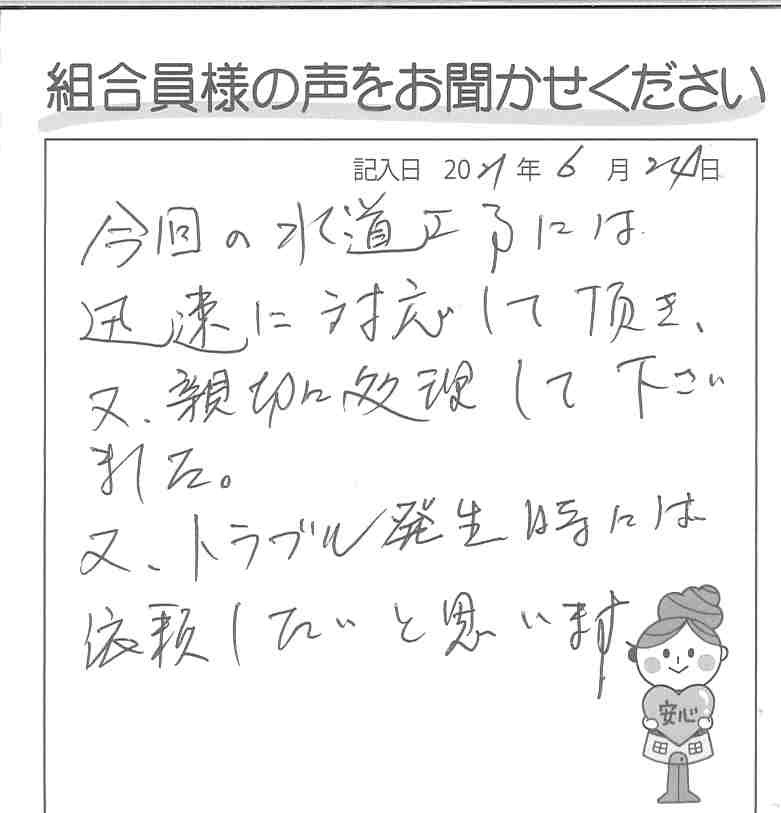 組合員様の声をお聞かせください
記入日 2021年6月24日
今回の水道工事には
迅速に対応して頂き、
又、親切に処理して下さい
ました。
又、トラブル発生時には
依頼したいと思います
安心